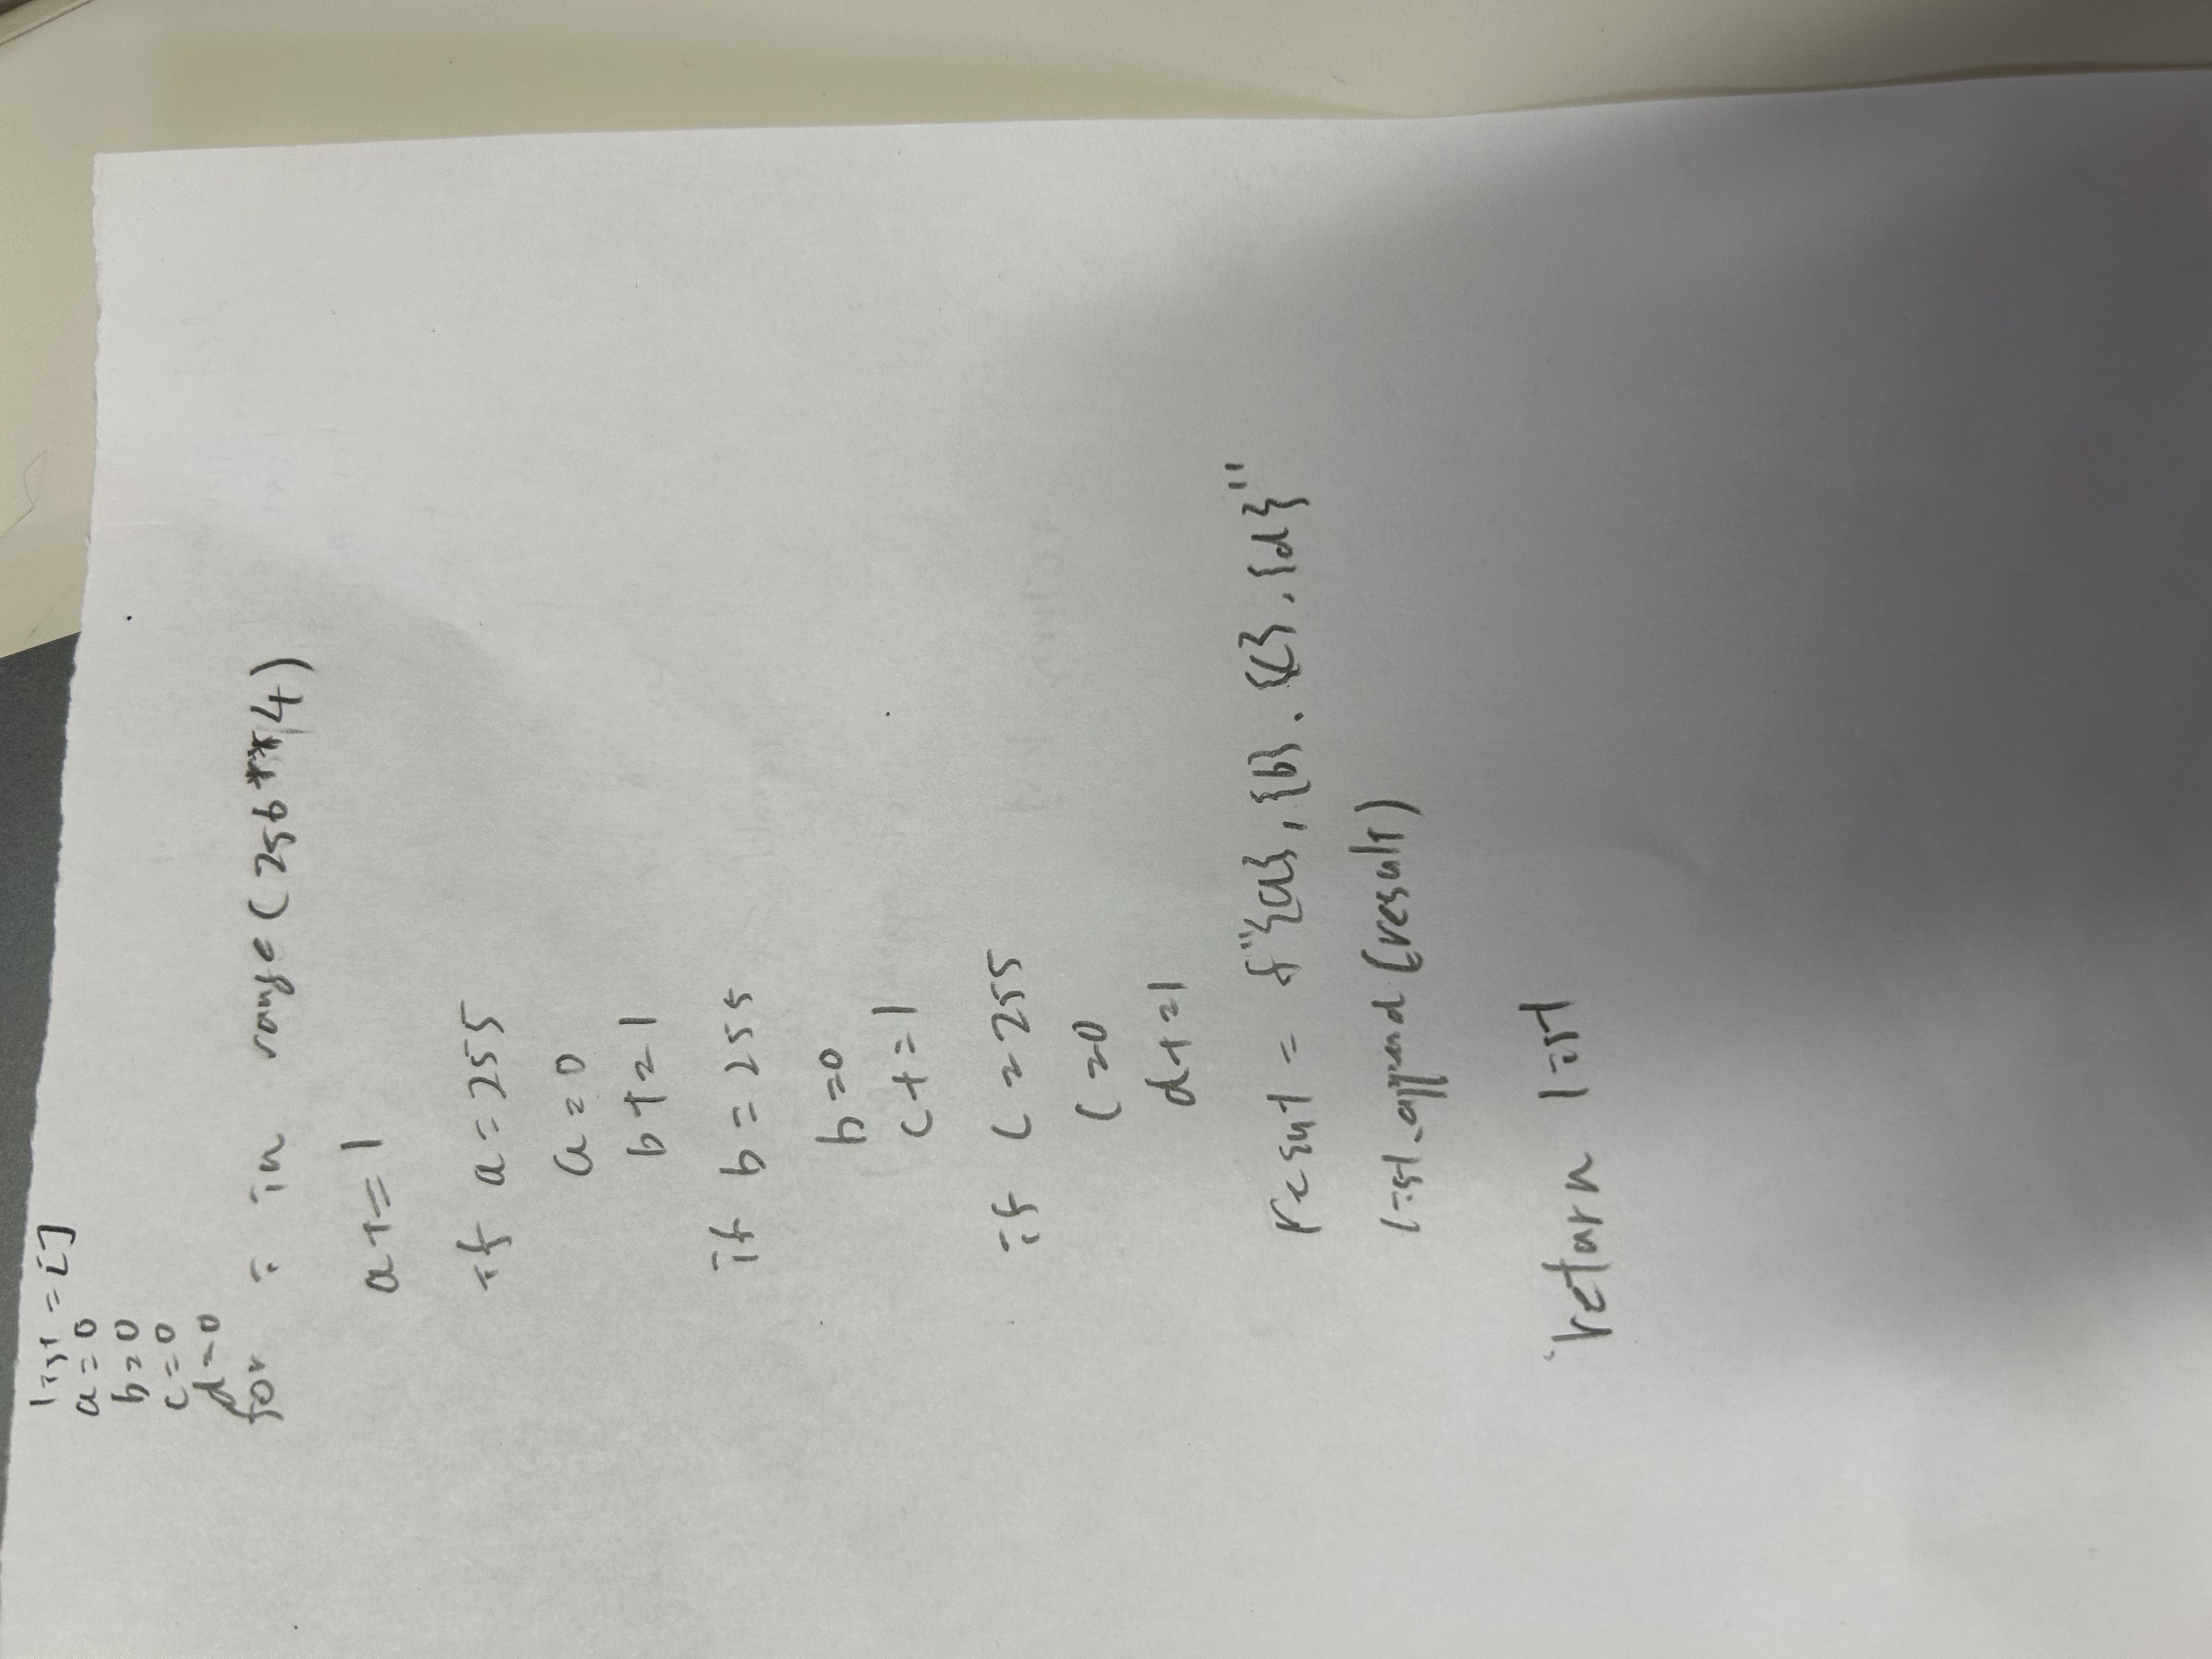 list = []
a = 0
b = 0
c = 0
d = 0
for i in range(256**4)
a += 1
if a = 255
a = 0
b += 1
if b = 255
b = 0
c += 1
if c = 255
c = 0
d += 1
resut = f"{a}.{b}.{c}.{d}"
list.append(result)
return list